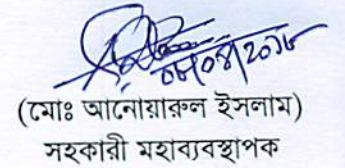 ০৮/০৪/২০১৮
(মোঃ আনোয়ারুল ইসলাম)
সহকারী মহাব্যবস্থাপক